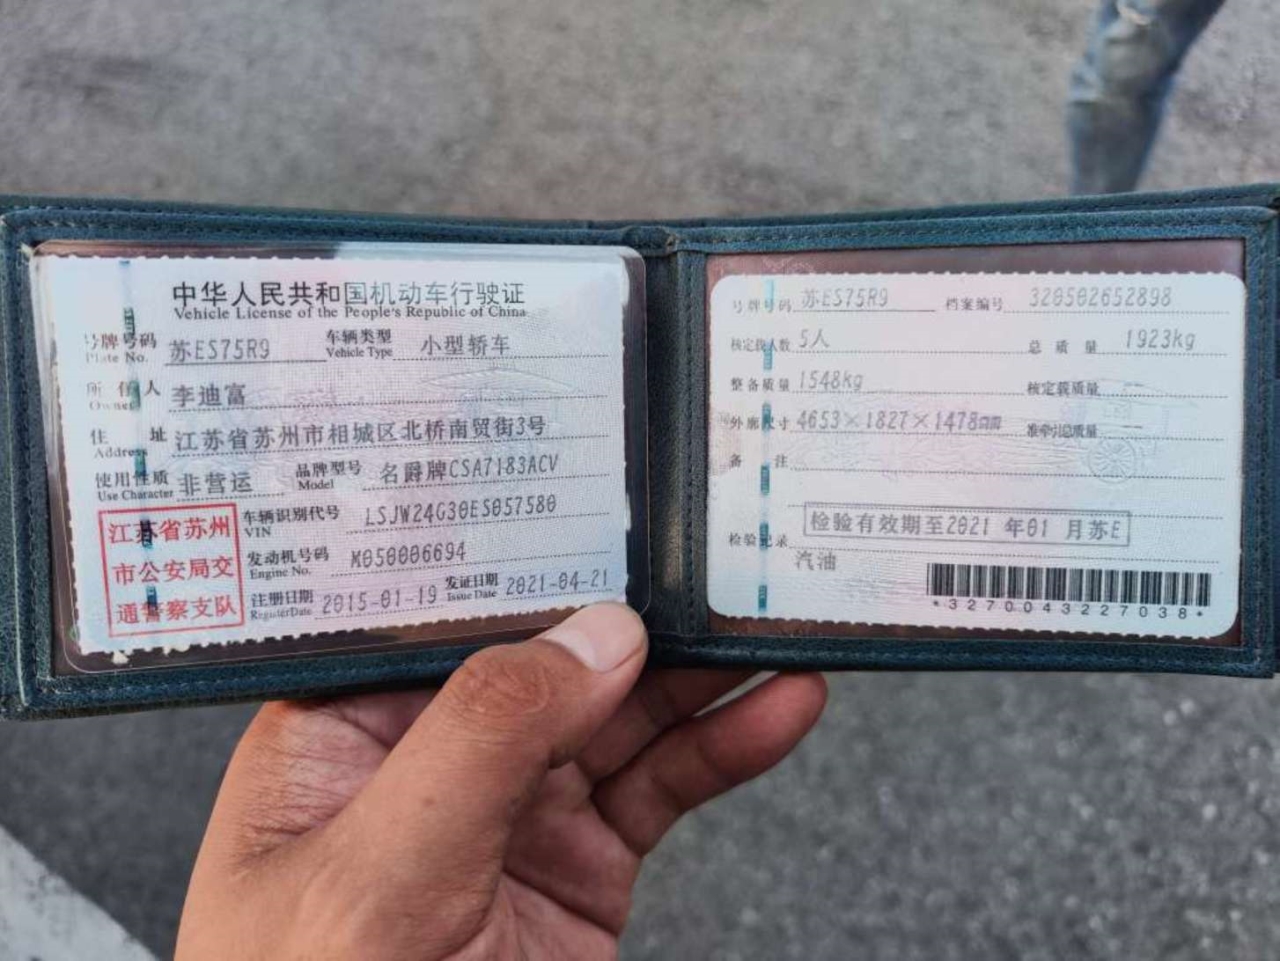 中华人民共和国机动车行驶证
Vehicle License of the People's Republic of China
号牌号码 苏ES75R9 车辆类型 小型轿车
Plate No. Vehicle Type
所有人 李迪富
Owner
住址 江苏省苏州市相城区北桥南贸街3号
Address
使用性质 非营运 品牌型号 名爵牌CSA7183ACV
Use Character Model
江苏省苏州
市公安局交
通警察支队
车辆识别代号 LSJW24G30ES057580
VIN
发动机号码 M050006694
Engine No.
注册日期 2015-01-19 发证日期 2021-04-21
RegisterDate Issue Date
号牌号码 苏ES75R9 档案编号 320502652898
核定载人数 5人 总质量 1923kg
整备质量 1548kg 核定载质量
外廓尺寸 4653×1827×1478mm 准牵引总质量
备注
检验有效期至2021年01月苏E
检验记录
汽油
*3270043227038*